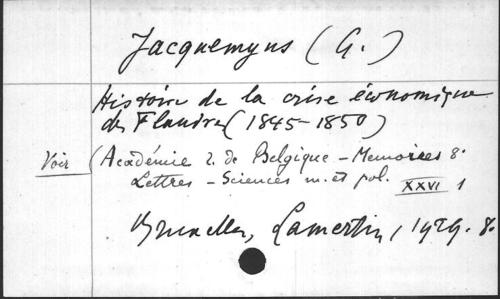 Jacquemyns (G.)
Histoire de la crise économique
des Flandres (1845-1850)
Voir (Académie r. de Belgique - Memoires 8°
Lettres - Sciences m. et pol. XXVI 1
Bruxelles, Lamertin, 1929. 8°